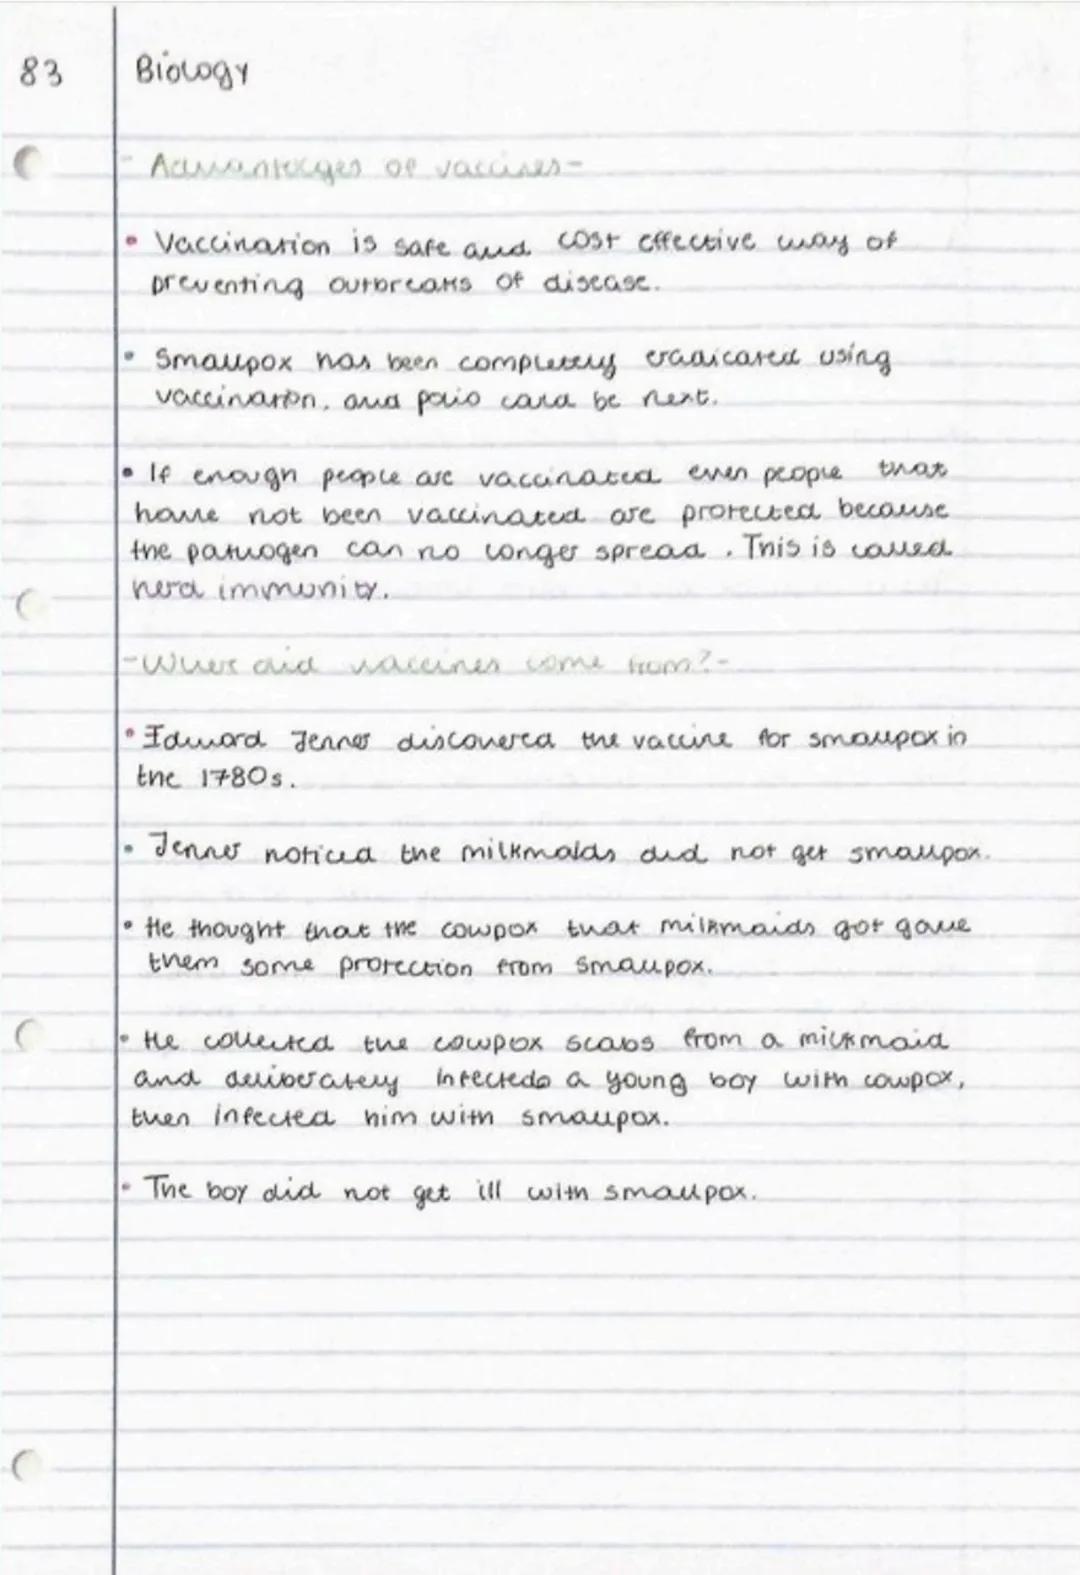 83 Biology
- Advantages of vaccines -
• Vaccination is safe and cost effective way of
preventing outbreaks of disease.
• Smallpox has been completely eradicated using
vaccination, and polio could be next.
• If enough people are vaccinated even people that
have not been vaccinated are protected because
the pathogen can no longer spread. This is called
herd immunity.
- Where did vaccines come from? -
• Edward Jenner discovered the vaccine for smallpox in
the 1780s.
• Jenner noticed the milkmaids did not get smallpox.
• He thought that the cowpox that milkmaids got gave
them some protection from smallpox.
• He collected the cowpox scabs from a milkmaid
and deliberately infected a young boy with cowpox,
then infected him with smallpox.
• The boy did not get ill with smallpox.